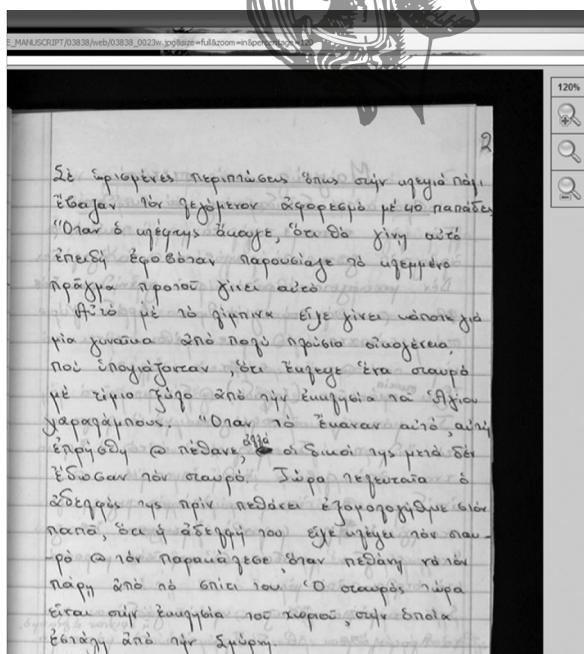 E_MANUSCRIPT/03838/web/03838_0023w.jpg&size=full&zoom=in&percentage=120
120%
2
Σὲ ὡρισμένες περιπτώσεις ὅπως στὴν κλεψιὰ πάλι
ἔβαζαν τὸν λεγόμενον ἀφορεσμὸ μὲ 40 παπάδες
"Όταν ὁ κλέφτης ἄκουγε, ὅτι θὰ γίνῃ αὐτὸ
ἐπειδὴ ἐφοβόταν παρουσίαζε τὸ κλεμμένο
πρᾶγμα προτοῦ γίνει αὐτό
Αὐτὸ μὲ τὸ εἶχε γίνει κάποτε γιὰ
μία γυναῖκα ἀπὸ πολὺ πλούσια οἰκογένεια,
ποὺ ὑποψιάζονταν, ὅτι ἔκλεψε ἕνα σταυρὸ
μὲ τίμιο ξύλο ἀπὸ τὴν ἐκκλησία τοῦ Ἁγίου
χαραλάμπους. Ὅταν τὸ ἔκαναν αὐτό, αὐτὴ
ἐπρήσθη @ πέθανε, ἀλλὰ οἱ δικοί της μετὰ δὲν
ἔδωσαν τὸν σταυρό. Τώρα τελευταῖα ὁ
ἀδελφός της πρὶν πεθάνει ἐξομολογήθηκε στὸν
παπᾶ, ὅτι ἡ ἀδελφή του εἶχε κλέψει τὸν σταυ-
-ρὸ @ τὸν παρακάλεσε, ὅταν πεθάνῃ νὰ τὸν
πάρῃ ἀπὸ τὸ σπίτι του. Ὁ σταυρὸς τώρα
εἶναι στὴν ἐκκλησία τοῦ χωριοῦ, στὴν ὁποία
ἐστάλη ἀπὸ τὴν Σμύρνη.